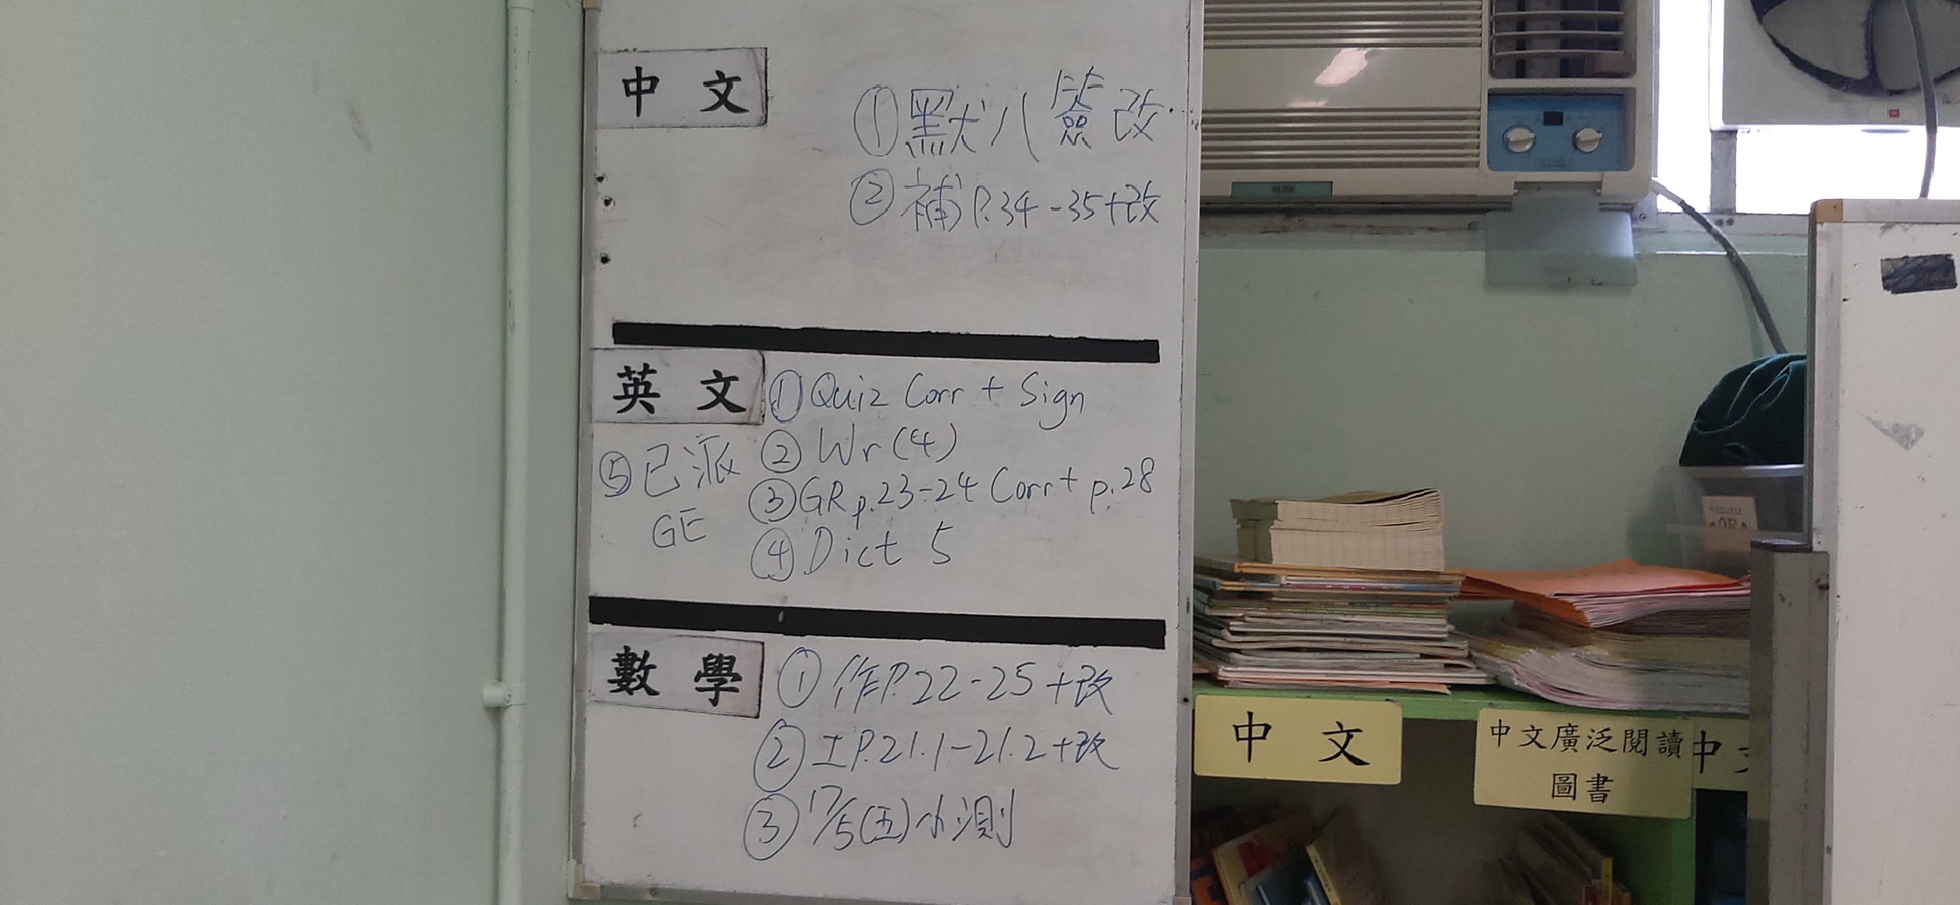 中文
①默八簽改
②補P.34-35+改
英文
①Quiz Corr + Sign
②Wr(4)
③GR p.23-24 Corr + p.28
④Dict 5
⑤已派
GE
數學
①作P.22-25+改
②工P.21.1-21.2+改
③17/5(五)小測
FILTER
中文
中文廣泛閱讀
圖書
中文